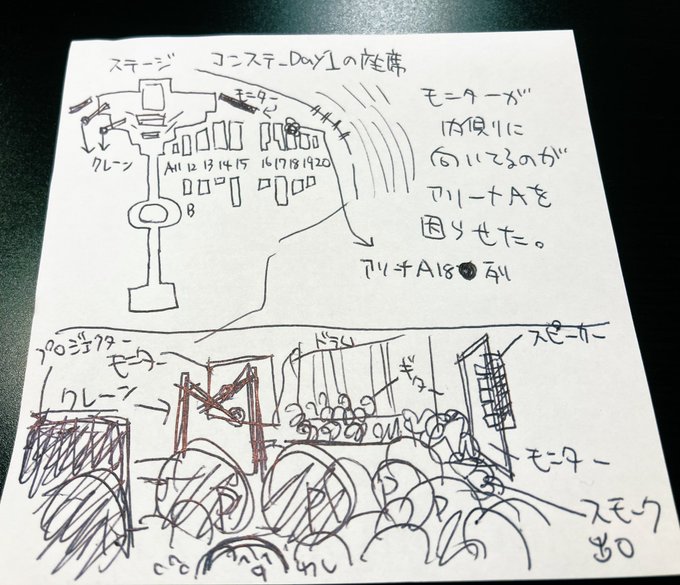 ステージ
コンステ_Day1の座席
モニター
クレーン
A11 12 13 14 15 16 17 18 19 20
B
モニターが
内側りに
向いてるのが
アリーナAを
困らせた。
アリーナA18 列
プロジェクター
モニター
クレーン
ドラム
ギター
スピーカー
モニター
スモーク
出口
わし